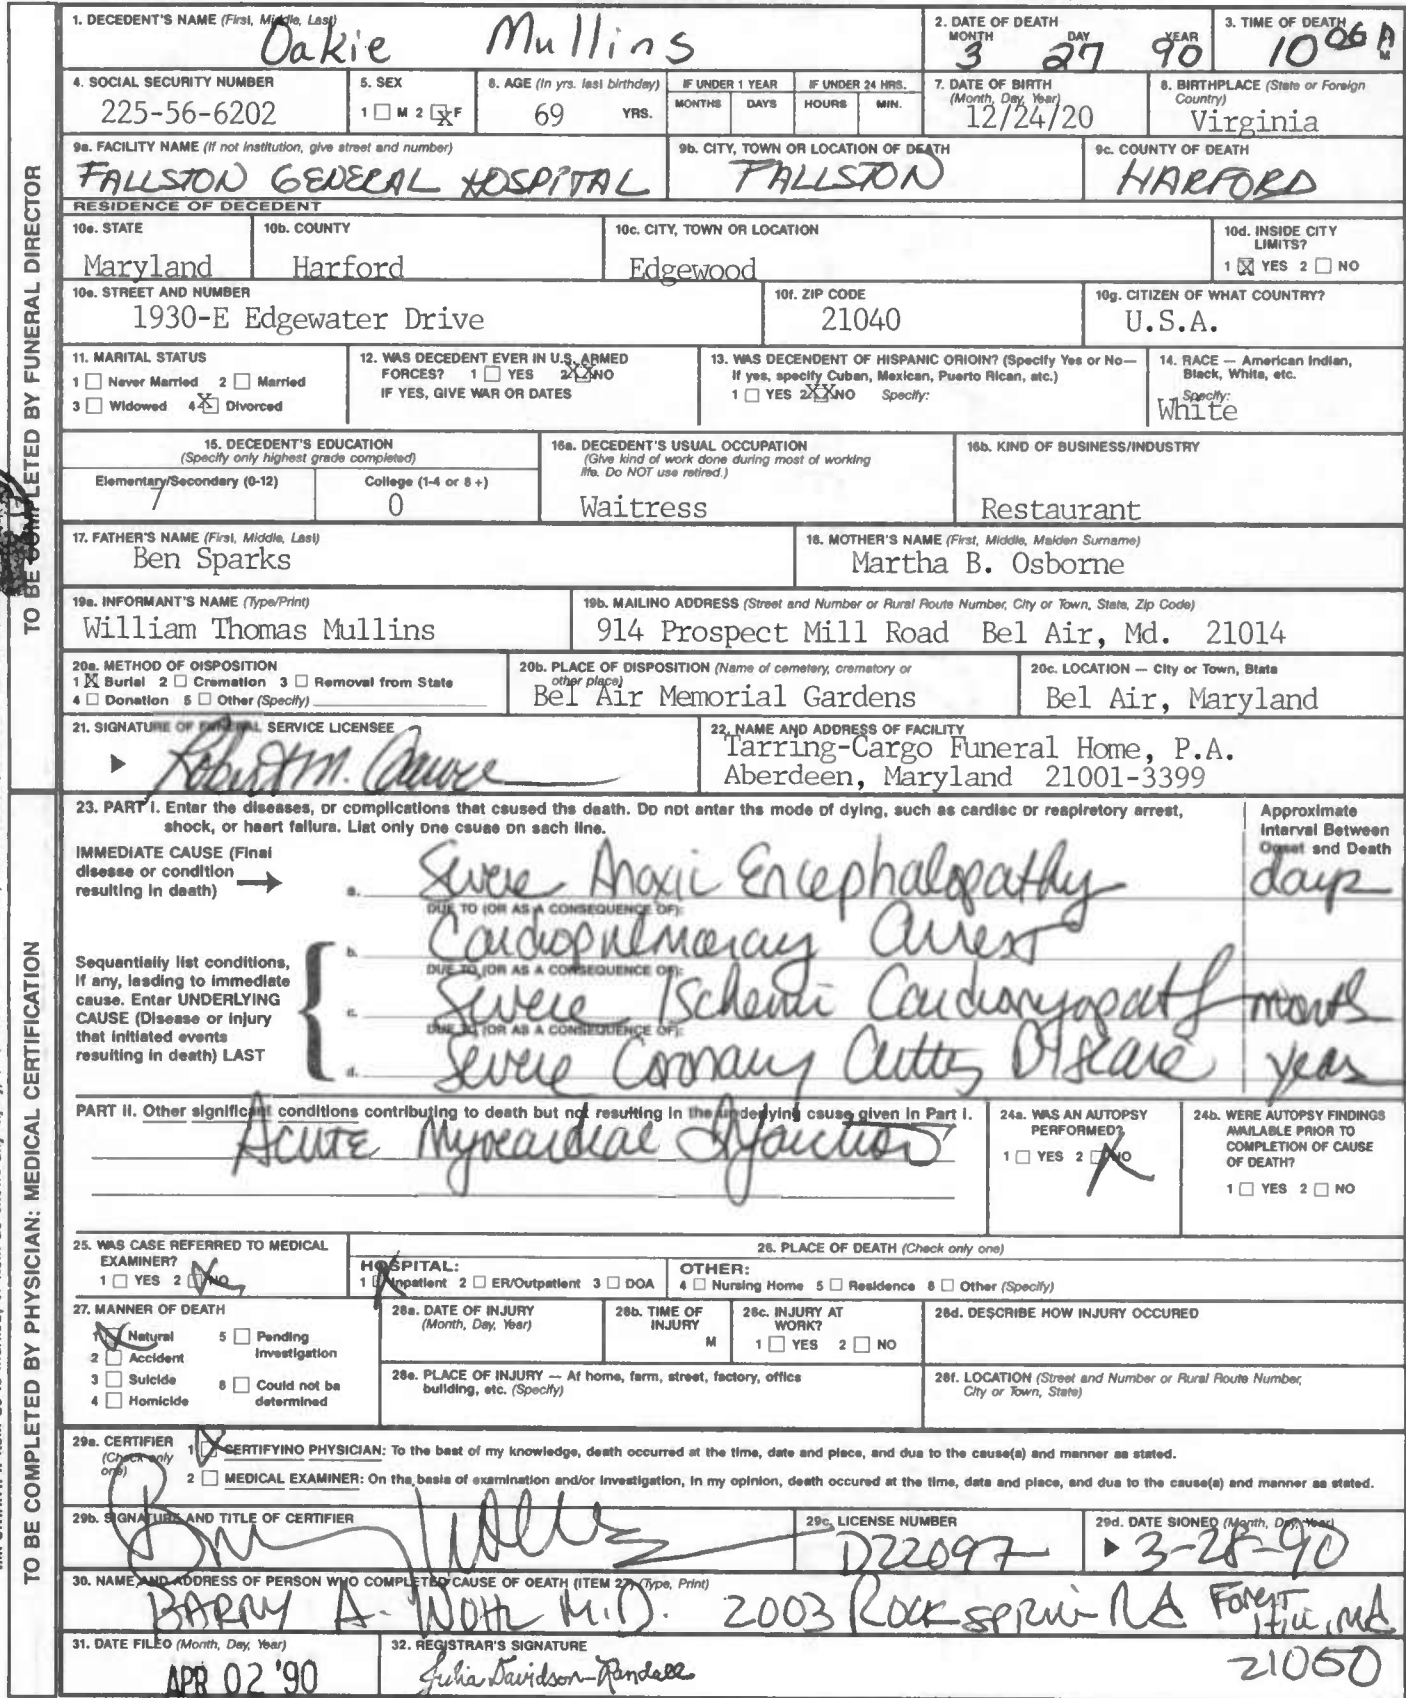 1. DECEDENT'S NAME (First, Middle, Last)
Oakie Mullins
2. DATE OF DEATH
MONTH DAY YEAR
3 27 90
3. TIME OF DEATH
10 06 A M
4. SOCIAL SECURITY NUMBER
225-56-6202
5. SEX
1 ☐ M 2 ☒ F
6. AGE (In yrs. last birthday)
69 YRS.
IF UNDER 1 YEAR
MONTHS DAYS
IF UNDER 24 HRS.
HOURS MIN.
7. DATE OF BIRTH
(Month, Day, Year)
12/24/20
8. BIRTHPLACE (State or Foreign
Country)
Virginia
9a. FACILITY NAME (If not institution, give street and number)
FALLSTON GENERAL HOSPITAL
9b. CITY, TOWN OR LOCATION OF DEATH
FALLSTON
9c. COUNTY OF DEATH
HARFORD
RESIDENCE OF DECEDENT
10a. STATE
Maryland
10b. COUNTY
Harford
10c. CITY, TOWN OR LOCATION
Edgewood
10d. INSIDE CITY
LIMITS?
1 ☒ YES 2 ☐ NO
10e. STREET AND NUMBER
1930-E Edgewater Drive
10f. ZIP CODE
21040
10g. CITIZEN OF WHAT COUNTRY?
U.S.A.
11. MARITAL STATUS
1 ☐ Never Married 2 ☐ Married
3 ☐ Widowed 4 ☒ Divorced
12. WAS DECEDENT EVER IN U.S. ARMED
FORCES? 1 ☐ YES 2 ☒ NO
IF YES, GIVE WAR OR DATES
13. WAS DECENDENT OF HISPANIC ORIGIN? (Specify Yes or No—
If yes, specify Cuban, Mexican, Puerto Rican, etc.)
1 ☐ YES 2 ☒ NO Specify:
14. RACE — American Indian,
Black, White, etc.
Specify:
White
15. DECEDENT'S EDUCATION
(Specify only highest grade completed)
Elementary/Secondary (0-12)
7
College (1-4 or 5+)
0
16a. DECEDENT'S USUAL OCCUPATION
(Give kind of work done during most of working
life. Do NOT use retired.)
Waitress
16b. KIND OF BUSINESS/INDUSTRY
Restaurant
17. FATHER'S NAME (First, Middle, Last)
Ben Sparks
18. MOTHER'S NAME (First, Middle, Maiden Surname)
Martha B. Osborne
19a. INFORMANT'S NAME (Type/Print)
William Thomas Mullins
19b. MAILING ADDRESS (Street and Number or Rural Route Number, City or Town, State, Zip Code)
914 Prospect Mill Road Bel Air, Md. 21014
20a. METHOD OF DISPOSITION
1 ☒ Burial 2 ☐ Cremation 3 ☐ Removal from State
4 ☐ Donation 5 ☐ Other (Specify)
20b. PLACE OF DISPOSITION (Name of cemetery, crematory or
other place)
Bel Air Memorial Gardens
20c. LOCATION — City or Town, State
Bel Air, Maryland
21. SIGNATURE OF FUNERAL SERVICE LICENSEE
Robert M.
22. NAME AND ADDRESS OF FACILITY
Tarring-Cargo Funeral Home, P.A.
Aberdeen, Maryland 21001-3399
TO BE COMPLETED BY FUNERAL DIRECTOR
23. PART I. Enter the diseases, or complications that caused the death. Do not enter the mode of dying, such as cardiac or respiratory arrest,
shock, or heart failure. List only one cause on each line.
Approximate
Interval Between
Onset and Death
IMMEDIATE CAUSE (Final
disease or condition
resulting in death)
a. Severe Anoxic Encephalopathy days
DUE TO (OR AS A CONSEQUENCE OF):
b. Cardiopulmonary Arrest
DUE TO (OR AS A CONSEQUENCE OF):
Sequentially list conditions,
if any, leading to immediate
cause. Enter UNDERLYING
CAUSE (Disease or injury
that initiated events
resulting in death) LAST
c. Severe Ischemi Cardiomyopathy months
DUE TO (OR AS A CONSEQUENCE OF):
d. Severe Coronary Artery Disease years
PART II. Other significant conditions contributing to death but not resulting in the underlying cause given in Part I.
Acute Myocardial Infarction
24a. WAS AN AUTOPSY
PERFORMED?
1 ☐ YES 2 ☒ NO
24b. WERE AUTOPSY FINDINGS
AVAILABLE PRIOR TO
COMPLETION OF CAUSE
OF DEATH?
1 ☐ YES 2 ☐ NO
25. WAS CASE REFERRED TO MEDICAL
EXAMINER?
1 ☐ YES 2 ☒ NO
26. PLACE OF DEATH (Check only one)
HOSPITAL:
1 ☒ Inpatient 2 ☐ ER/Outpatient 3 ☐ DOA
OTHER:
4 ☐ Nursing Home 5 ☐ Residence 6 ☐ Other (Specify)
27. MANNER OF DEATH
1 ☒ Natural 5 ☐ Pending
Investigation
2 ☐ Accident
3 ☐ Suicide 6 ☐ Could not be
determined
4 ☐ Homicide
28a. DATE OF INJURY
(Month, Day, Year)
28b. TIME OF
INJURY
M
28c. INJURY AT
WORK?
1 ☐ YES 2 ☐ NO
28d. DESCRIBE HOW INJURY OCCURED
28e. PLACE OF INJURY — At home, farm, street, factory, office
building, etc. (Specify)
28f. LOCATION (Street and Number or Rural Route Number,
City or Town, State)
29a. CERTIFIER
(Check only
one)
1 ☒ CERTIFYING PHYSICIAN: To the best of my knowledge, death occurred at the time, date and place, and due to the cause(s) and manner as stated.
2 ☐ MEDICAL EXAMINER: On the basis of examination and/or investigation, in my opinion, death occured at the time, date and place, and due to the cause(s) and manner as stated.
29b. SIGNATURE AND TITLE OF CERTIFIER
29c. LICENSE NUMBER
D22097
29d. DATE SIGNED (Month, Day, Year)
3-28-90
30. NAME AND ADDRESS OF PERSON WHO COMPLETED CAUSE OF DEATH (ITEM 27) (Type, Print)
BARRY A. WOHL M.D. 2003 Rock Spring Rd Forest Hill, Md
21050
31. DATE FILED (Month, Day, Year)
APR 02 '90
32. REGISTRAR'S SIGNATURE
Julia Davidson-Randall
TO BE COMPLETED BY PHYSICIAN: MEDICAL CERTIFICATION